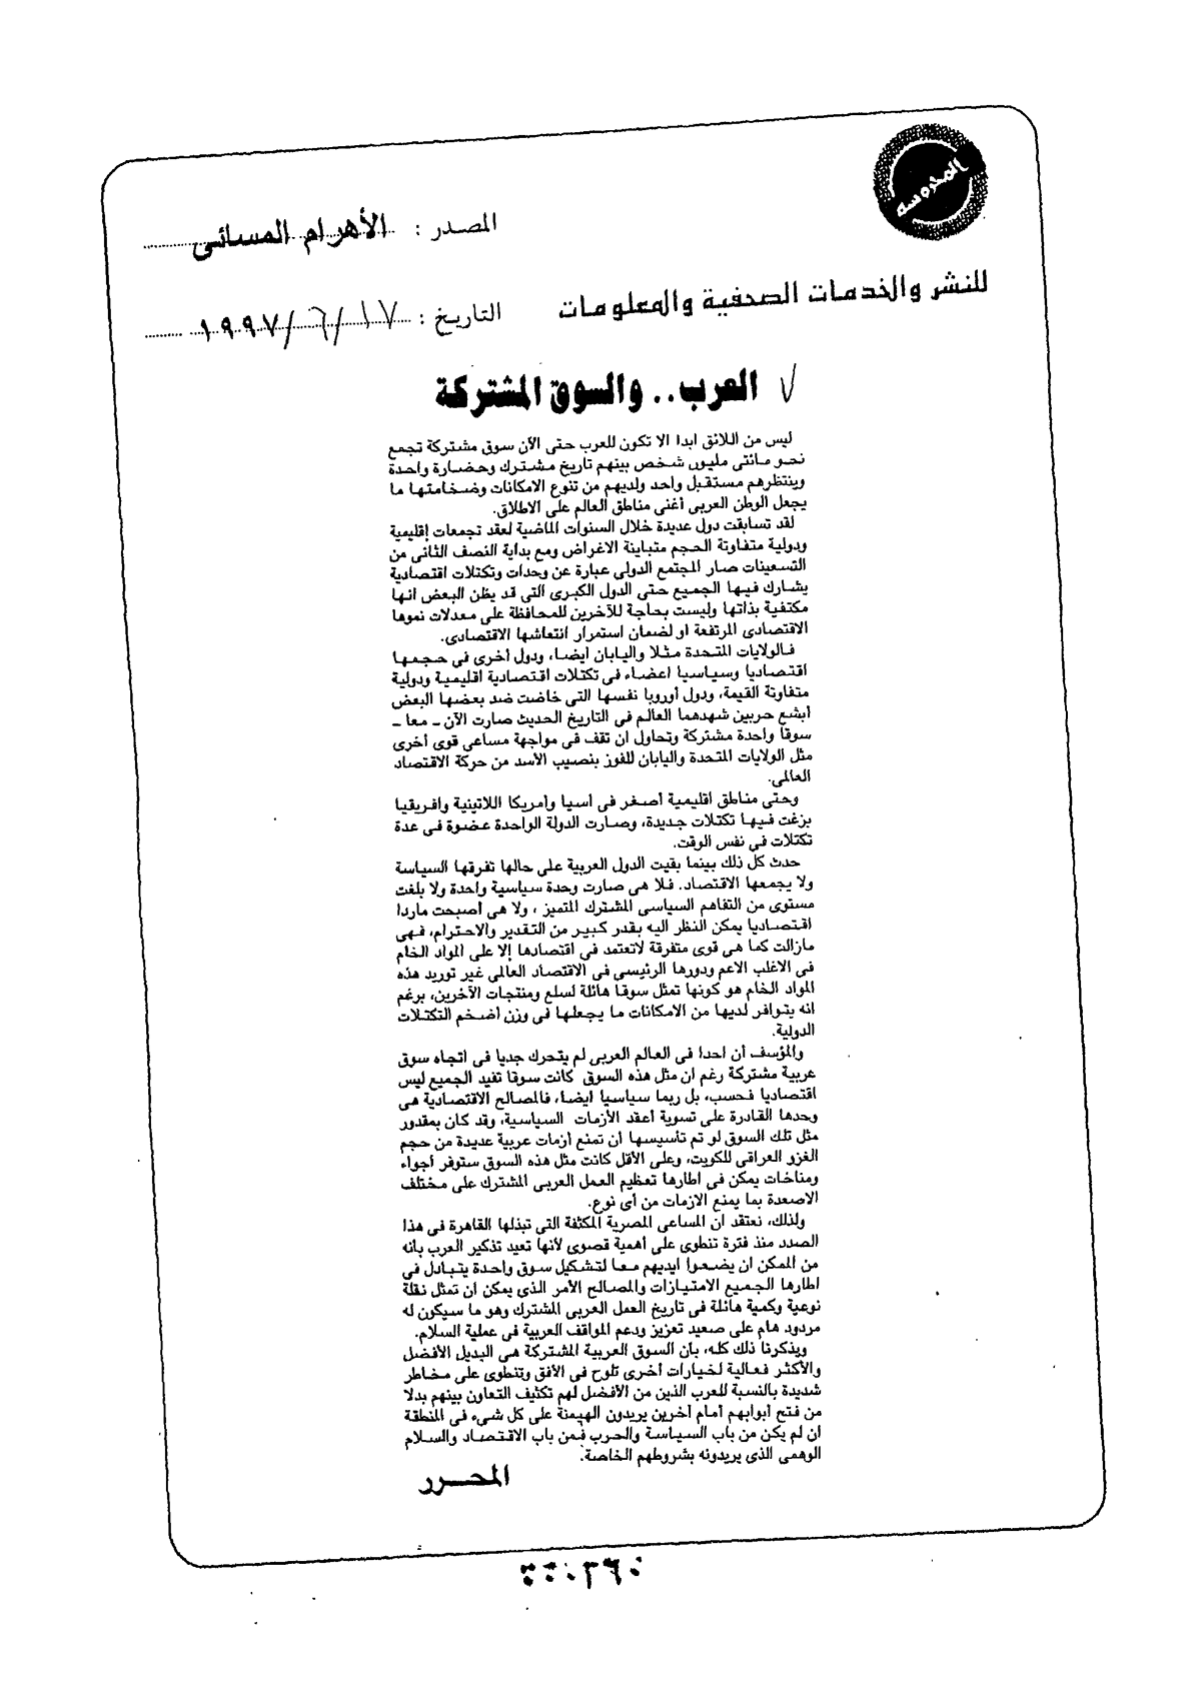 المحروسة
المصدر : الأهرام المسائى
للنشر والخدمات الصحفية والمعلومات
التاريخ : ١٩٩٧/٦/١٧
العرب.. والسوق المشتركة
ليس من اللائق ابدا الا تكون للعرب حتى الآن سوق مشتركة تجمع
نحو مائتى مليون شخص بينهم تاريخ مشترك وحضارة واحدة
وينتظرهم مستقبل واحد ولديهم من تنوع الامكانات وضخامتها ما
يجعل الوطن العربى أغنى مناطق العالم على الاطلاق.
لقد تسابقت دول عديدة خلال السنوات الماضية لعقد تجمعات إقليمية
ودولية متفاوتة الحجم متباينة الاغراض ومع بداية النصف الثانى من
التسعينات صار المجتمع الدولى عبارة عن وحدات وتكتلات اقتصادية
يشارك فيها الجميع حتى الدول الكبرى التى قد يظن البعض انها
مكتفية بذاتها وليست بحاجة للآخرين للمحافظة على معدلات نموها
الاقتصادى المرتفعة او لضمان استمرار انتعاشها الاقتصادى.
فالولايات المتحدة مثلا واليابان ايضا، ودول أخرى فى حجمها
اقتصاديا وسياسيا اعضاء فى تكتلات اقتصادية اقليمية ودولية
متفاوتة القيمة، ودول أوروبا نفسها التى خاضت ضد بعضها البعض
أبشع حربين شهدهما العالم فى التاريخ الحديث صارت الآن ـ معا ـ
سوقا واحدة مشتركة وتحاول ان تقف فى مواجهة مساعى قوى أخرى
مثل الولايات المتحدة واليابان للفوز بنصيب الأسد من حركة الاقتصاد
العالمى.
وحتى مناطق اقليمية أصغر فى اسيا وأمريكا اللاتينية وافريقيا
بزغت فيها تكتلات جديدة، وصارت الدولة الواحدة عضوة فى عدة
تكتلات فى نفس الوقت.
حدث كل ذلك بينما بقيت الدول العربية على حالها تفرقها السياسة
ولا يجمعها الاقتصاد. فلا هى صارت وحدة سياسية واحدة ولا بلغت
مستوى من التفاهم السياسى المشترك المتميز ، ولا هى أصبحت ماردا
اقتصاديا يمكن النظر اليه بقدر كبير من التقدير والاحترام، فهى
مازالت كما هى قوى متفرقة لاتعتمد فى اقتصادها إلا على المواد الخام
فى الاغلب الاعم ودورها الرئيسى فى الاقتصاد العالمى غير توريد هذه
المواد الخام هو كونها تمثل سوقا هائلة لسلع ومنتجات الآخرين، برغم
انه يتوافر لديها من الامكانات ما يجعلها فى وزن أضخم التكتلات
الدولية.
والمؤسف أن احدا فى العالم العربى لم يتحرك جديا فى اتجاه سوق
عربية مشتركة رغم ان مثل هذه السوق كانت سوقا تفيد الجميع ليس
اقتصاديا فحسب، بل ربما سياسيا ايضا، فالمصالح الاقتصادية هى
وحدها القادرة على تسوية أعقد الأزمات السياسية، وقد كان بمقدور
مثل تلك السوق لو تم تأسيسها ان تمنع أزمات عربية عديدة من حجم
الغزو العراقى للكويت، وعلى الأقل كانت مثل هذه السوق ستوفر أجواء
ومناخات يمكن فى اطارها تعظيم العمل العربى المشترك على مختلف
الاصعدة بما يمنع الازمات من أى نوع.
ولذلك، نعتقد ان المساعى المصرية المكثفة التى تبذلها القاهرة فى هذا
الصدد منذ فترة تنطوى على أهمية قصوى لأنها تعيد تذكير العرب بأنه
من الممكن ان يضعوا ايديهم معا لتشكيل سوق واحدة يتبادل فى
اطارها الجميع الامتيازات والمصالح الأمر الذى يمكن ان تمثل نقلة
نوعية وكمية هائلة فى تاريخ العمل العربى المشترك وهو ما سيكون له
مردود هام على صعيد تعزيز ودعم المواقف العربية فى عملية السلام.
ويذكرنا ذلك كله، بأن السوق العربية المشتركة هى البديل الأفضل
والأكثر فعالية لخيارات أخرى تلوح فى الأفق وتنطوى على مخاطر
شديدة بالنسبة للعرب الذين من الأفضل لهم تكثيف التعاون بينهم بدلا
من فتح أبوابهم أمام آخرين يريدون الهيمنة على كل شىء فى المنطقة
ان لم يكن من باب السياسة والحرب فمن باب الاقتصاد والسلام
الوهمى الذى يريدونه بشروطهم الخاصة.
المحرر